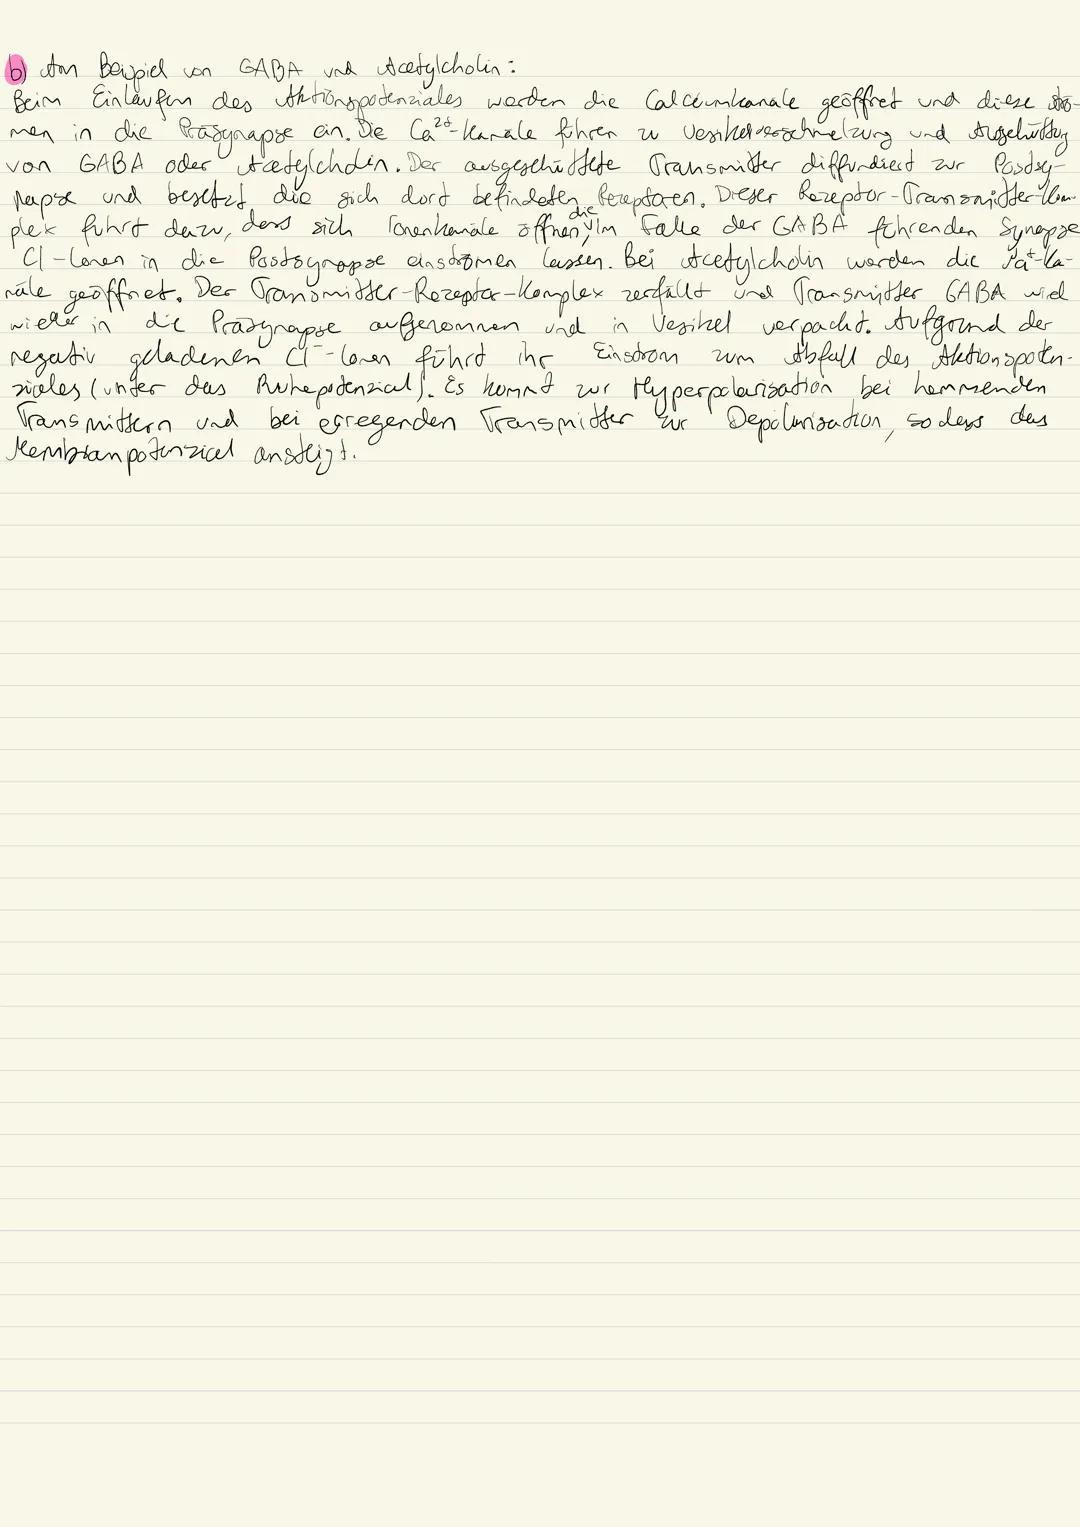 b) Am Beispiel von GABA und Acetylcholin:
Beim Einlaufen des Aktionspotenziales werden die Calciumkanäle geöffnet und diese strö-
men in die Präsynapse ein. Die Ca²⁺-Kanäle führen zu Vesikelverschmelzung und Ausschüttung
von GABA oder Acetylcholin. Der ausgeschüttete Transmitter diffundiert zur Postsy-
napse und besetzt, die sich dort befindeten Rezeptoren. Dieser Rezeptor-Transmitter-Kom-
plex führt dazu, dass sich Ionenkanäle öffnen, die im Falle der GABA führenden Synapse
Cl-Ionen in die Postsynapse einströmen lassen. Bei Acetylcholin werden die Na⁺-Ka-
näle geöffnet. Der Transmitter-Rezeptor-Komplex zerfällt und Transmitter GABA wird
wieder in die Präsynapse aufgenommen und in Vesikel verpackt. Aufgrund der
negativ geladenen Cl⁻-Ionen führt ihr Einstrom zum Abfall des Aktionspoten-
ziales (unter das Ruhepotenzial). Es kommt zur Hyperpolarisation bei hemmenden
Transmittern und bei erregenden Transmitter zur Depolarisation, so dass das
Membranpotenzial ansteigt.